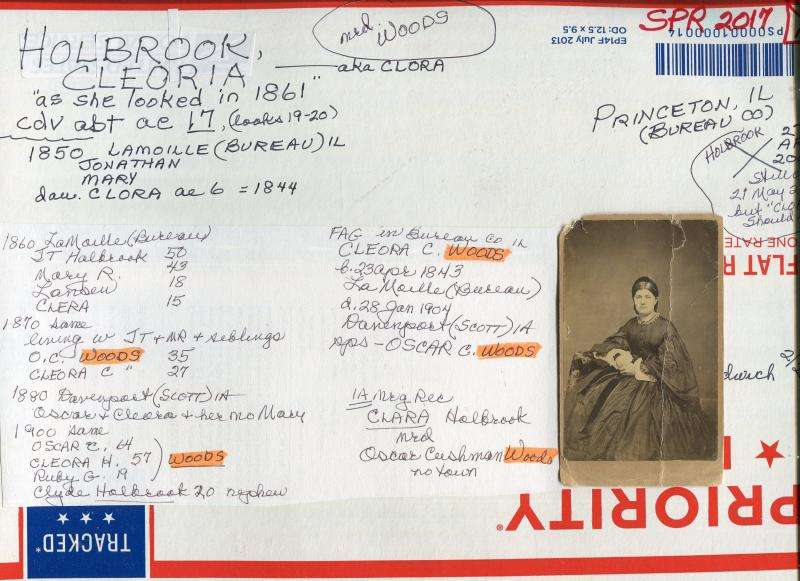 HOLBROOK,
CLEORIA
mrd WOODS
aka CLORA
"as she looked in 1861"
cdv abt ae 17, (looks 19-20)
1850 LAMOILLE (BUREAU) IL
JONATHAN
MARY
dau. CLORA ae 6 = 1844
EP14F July 2013
OD: 12.5 x 9.5
SPR 2017
PS00001000014
PRINCETON, IL
(BUREAU CO)
HOLBROOK
still
21 May
but "Clo
should
1860 LaMoille (Bureau)
JT Holbrook 50
Mary R. 43
18
CLERA 15
1870 same
living w JT + MR + siblings
O.C. WOODS 35
CLEORA C " 27
1880 Davenport (SCOTT) IA
Oscar + Cleora + her mo Mary
1900 same
OSCAR C. 64
CLEORA H. 57 WOODS
Ruby G. 19
Clyde Holbrook 20 nephew
FAG in Bureau Co IL
CLEORA C. WOODS
b. 23 apr 1843
La Moille (Bureau)
d. 28 Jan 1904
Davenport (SCOTT) IA
sps - OSCAR C. WOODS
IA Mrg Rec
CLARA Holbrook
mrd
Oscar Cushman Woods
no town
ONE RATE
FLAT R
church
PRIORITY
TRACKED